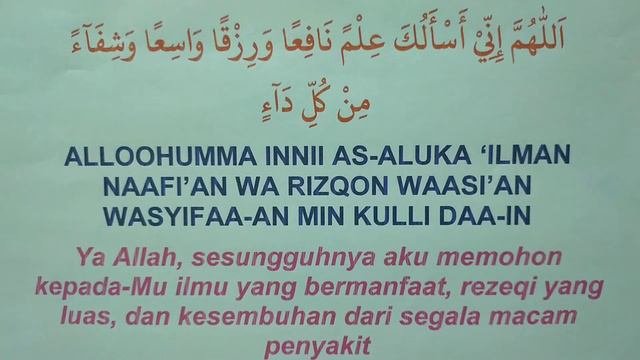 اَللّٰهُمَّ إِنِّيْ أَسْأَلُكَ عِلْمً نَافِعًا وَرِزْقًا وَاسِعًا وَشِفَآءً
مِنْ كُلِّ دَآءٍ
ALLOOHUMMA INNII AS-ALUKA ‘ILMAN
NAAFI’AN WA RIZQON WAASI’AN
WASYIFAA-AN MIN KULLI DAA-IN
Ya Allah, sesungguhnya aku memohon
kepada-Mu ilmu yang bermanfaat, rezeqi yang
luas, dan kesembuhan dari segala macam
penyakit